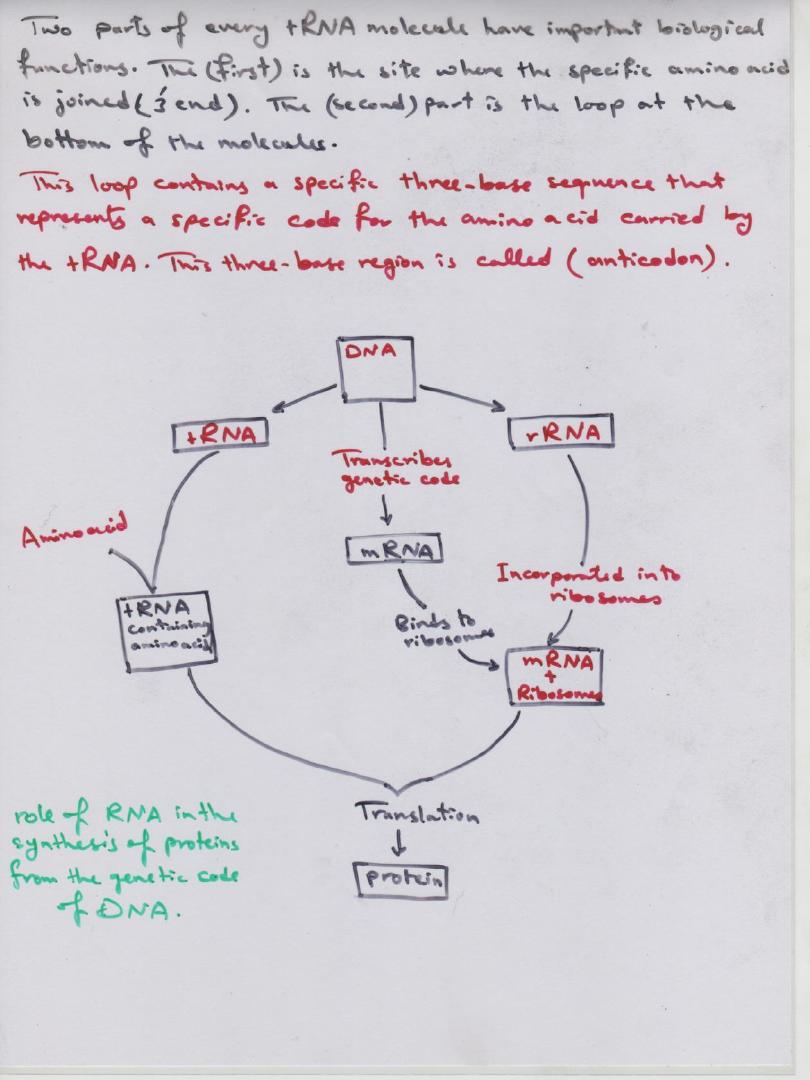 Two parts of every tRNA molecule have important biological
functions. The (first) is the site where the specific amino acid
is joined (3' end). The (second) part is the loop at the
bottom of the molecules.
This loop contains a specific three-base sequence that
represents a specific code for the amino acid carried by
the tRNA. This three-base region is called (anticodon).
DNA
tRNA
rRNA
Transcribes
genetic code
Amino acid
mRNA
Incorporated into
ribosomes
tRNA
containing
amino acid
Binds to
ribosomes
mRNA
+
Ribosomes
Translation
protein
role of RNA in the
synthesis of proteins
from the genetic code
of DNA.